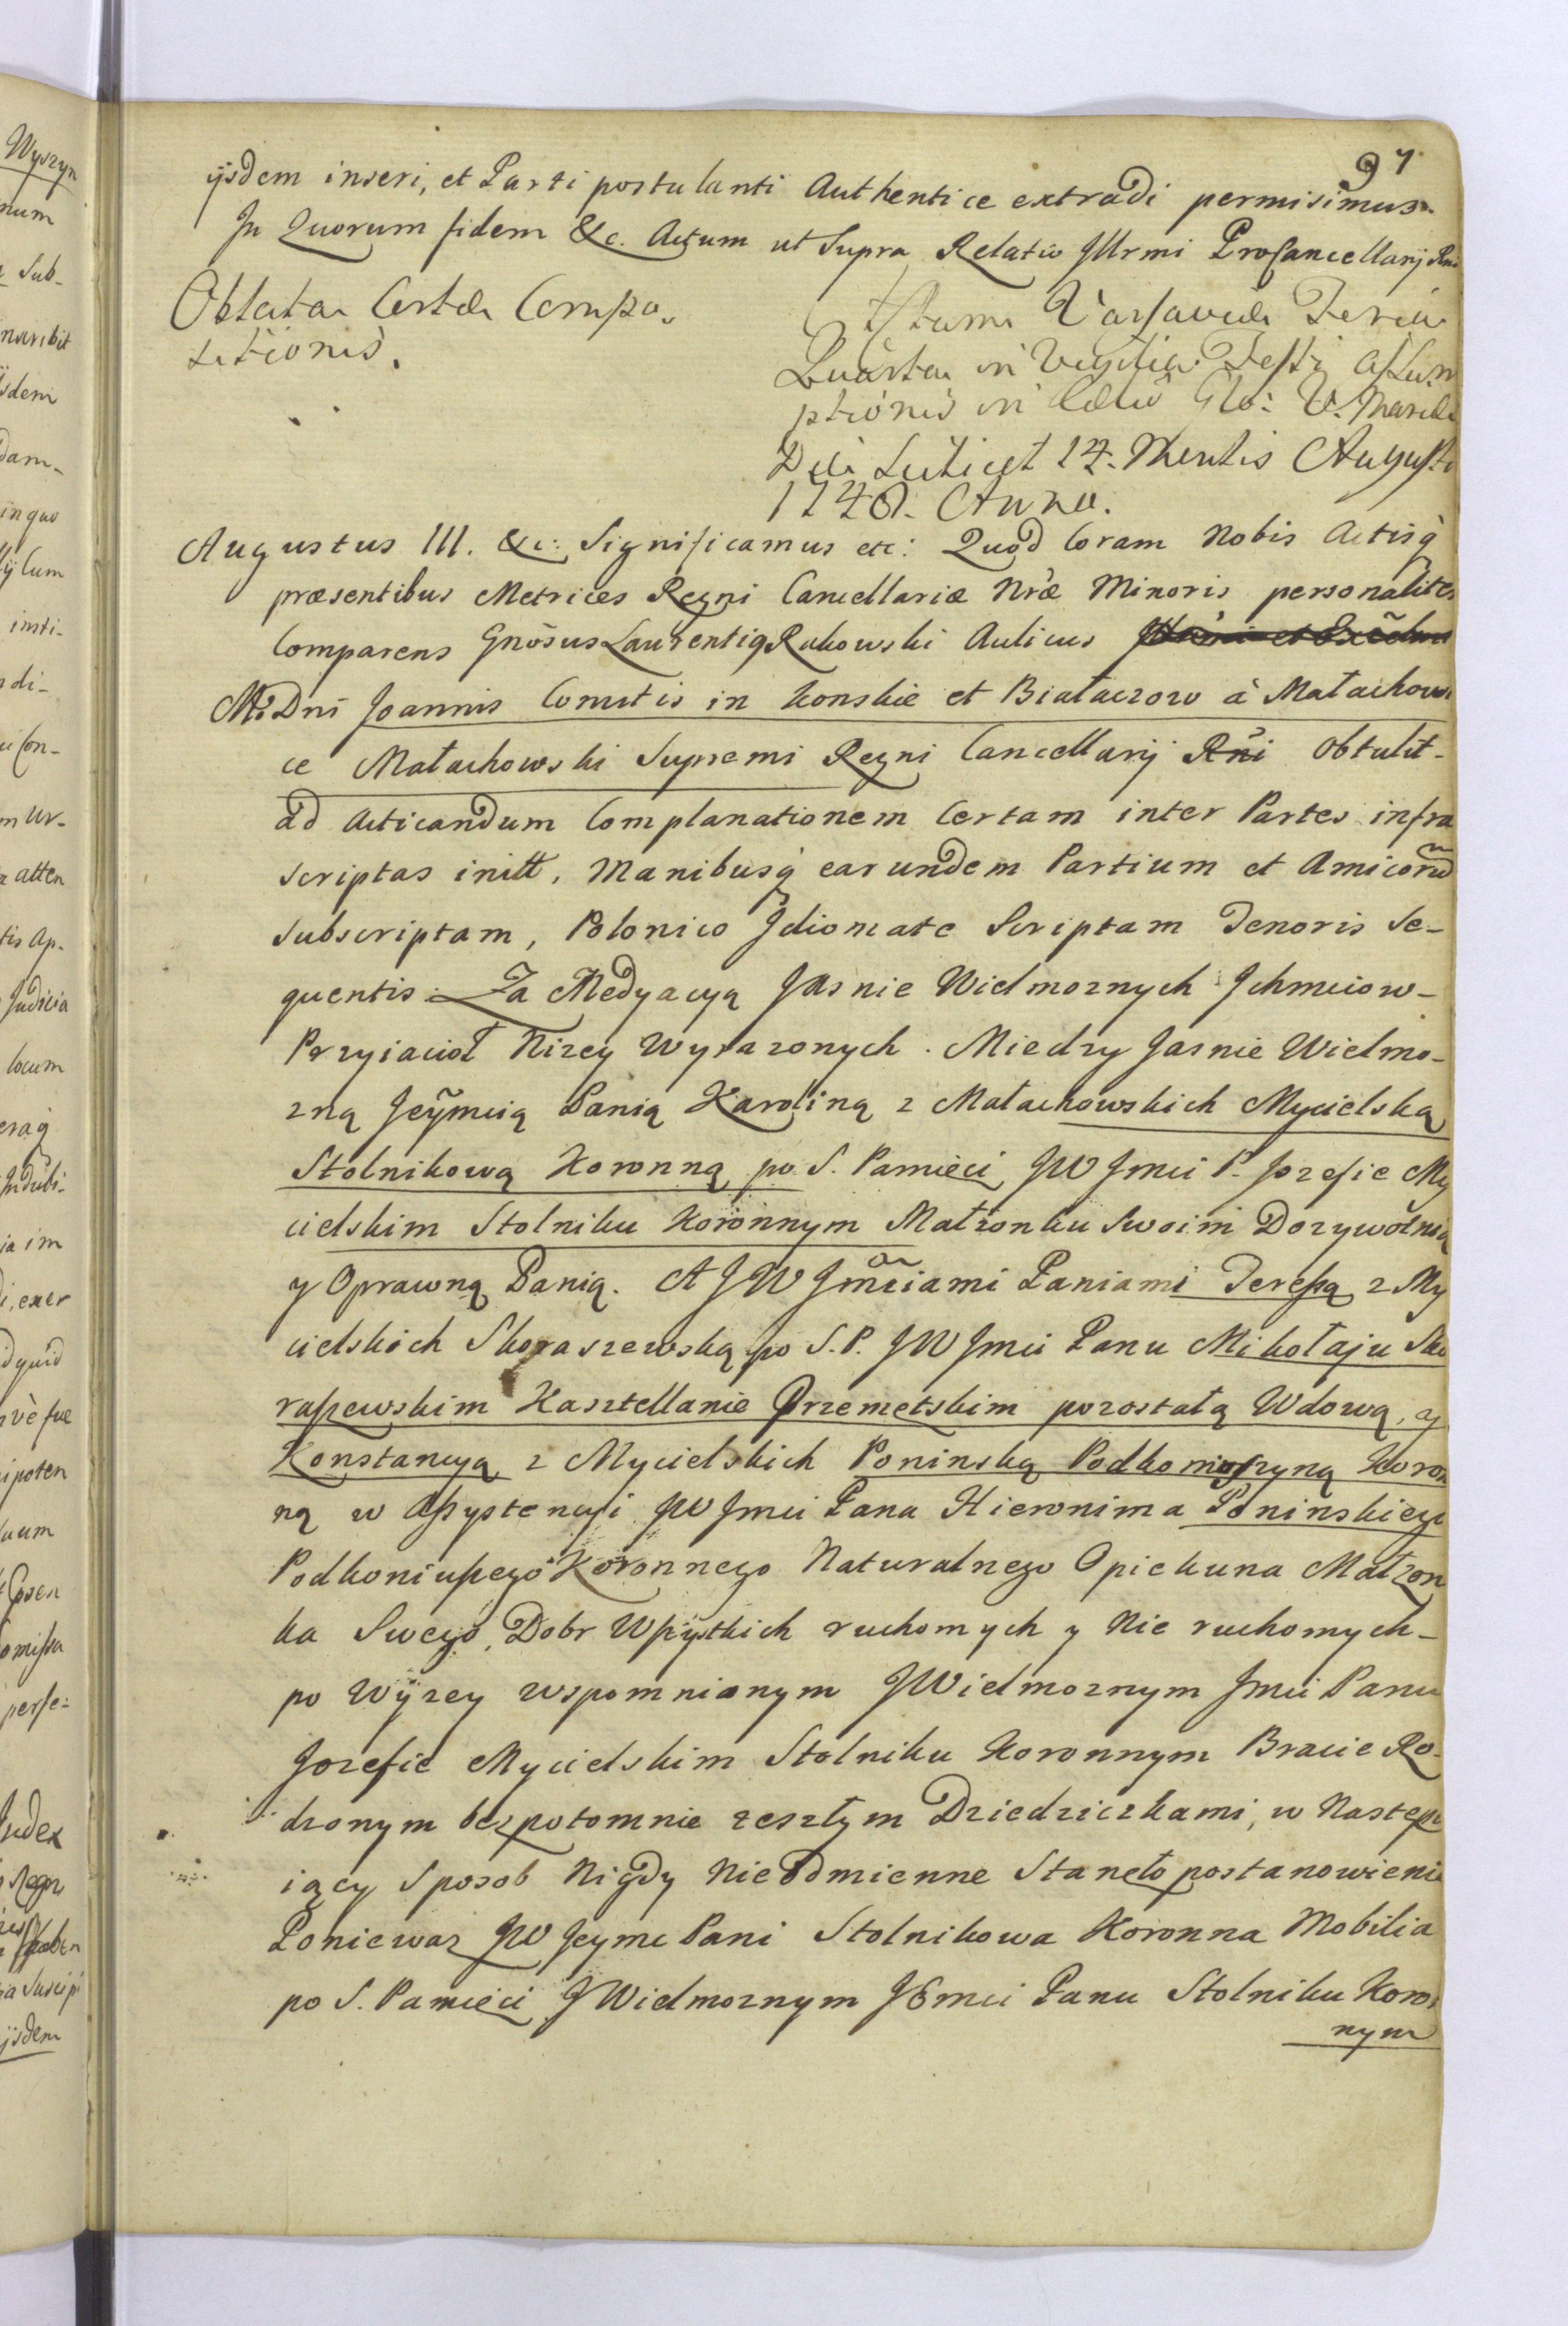 97
ijsdem inseri, et Parti postulanti Authentice extradi permisimus.
In Quorum fidem &c. Actum ut Supra Relatio Illrmi ProCancellarij Rni
Oblata Certæ Compo-
sitionis.
Actum Varsaviæ Feria
Quarta in Vigilia Festi Assum
ptionis in Cælū Glo: V. Mariæ
Die Scilicet 14. Mensis Augusti
1748. Anno.
Augustus III. &c: Significamus etc: Quod Coram Nobis Actisq́
præsentibus Metrices Regni Cancellariæ Nr̃æ Minoris personaliter
Comparens Gnõsus Laurentiq Rukowski Aulicus
Mci Dni Joannis Comitis in Konskie et Białaczow à Małachow
ce Małachowski Supremi Regni Cancellarij Rni Obtulit-
ad Acticandum Complanationem Certam inter Partes infra
scriptas initt, Manibusq́ earundem Partium et Amicorū
subscriptam, Polonico Idiomate Scriptam Tenoris Se-
quentis. Za Medyacyą Jasnie Wielmoznych Ichmciow-
Przyiacioł Nizey Wyrazonych. Miedzy Jasnie Wielmo-
zną Jeÿmcią Panią Karoliną z Małachowskich Mycielską
Stolnikową Koronną po S. Pamięci JW Jmci P. Jozefie My
cielskim Stolniku Koronnym Małzonku Swoim Dozywotnią
y Oprawną Panią. A JW Jm̃ciami Paniami Teressą z My
cielskich Skoraszewską po S.P. JW Jmci Panu Mikołaju Sko
raszewskim Kasztellanie Przemetskim pozostałą Wdową, y
Konstancyą z Mycielskich Poninską Podkoniuszyną Koron
ną w Assystencyi JW Jmci Pana Hieronima Poninskiego
Podkoniuszego Koronnego Naturalnego Opiekuna Małzon
ka Swego, Dobr Wszystkich ruchomych y Nie ruchomych-
po Wÿzey wspomnianym JWielmoznym Jmci Panu
Jozefie Mycielskim Stolniku Koronnym Bracie Ro-
dzonym bez potomnie zeszłym Dziedziczkami, w Nastepu
iący Sposob Nigdy Nieodmienne Staneło postanowienie
Poniewaz JW Jeymc Pani Stolnikowa Koronna Mobilia
po S. Pamięci JWielmoznym JEmci Panu Stolniku Koron
nym